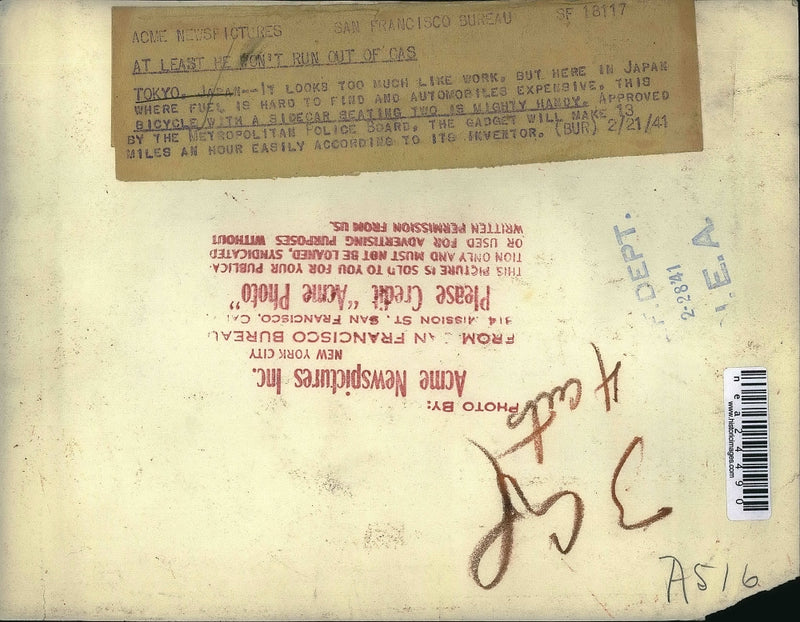 ACME NEWSPICTURES SAN FRANCISCO BUREAU SF 18117
AT LEAST HE WON'T RUN OUT OF GAS
TOKYO, JAPAN--IT LOOKS TOO MUCH LIKE WORK, BUT HERE IN JAPAN
WHERE FUEL IS HARD TO FIND AND AUTOMOBILES EXPENSIVE, THIS
BICYCLE WITH A SIDECAR SEATING TWO IS MIGHTY HANDY. APPROVED
BY THE METROPOLITAN POLICE BOARD, THE GADGET WILL MAKE 18
MILES AN HOUR EASILY ACCORDING TO ITS INVENTOR. (BUR) 2/21/41
PHOTO BY:
Acme Newspictures Inc.
NEW YORK CITY
FROM SAN FRANCISCO BUREAU
814 MISSION ST. SAN FRANCISCO, CAL
Please Credit "Acme Photo"
THIS PICTURE IS SOLD TO YOU FOR YOUR PUBLICA-
TION ONLY AND MUST NOT BE LOANED, SYNDICATED
OR USED FOR ADVERTISING PURPOSES WITHOUT
WRITTEN PERMISSION FROM US.
DEPT.
2-28-41
N.E.A.
4 cuts
3 Col
nea24490
www.historicimages.com
A516